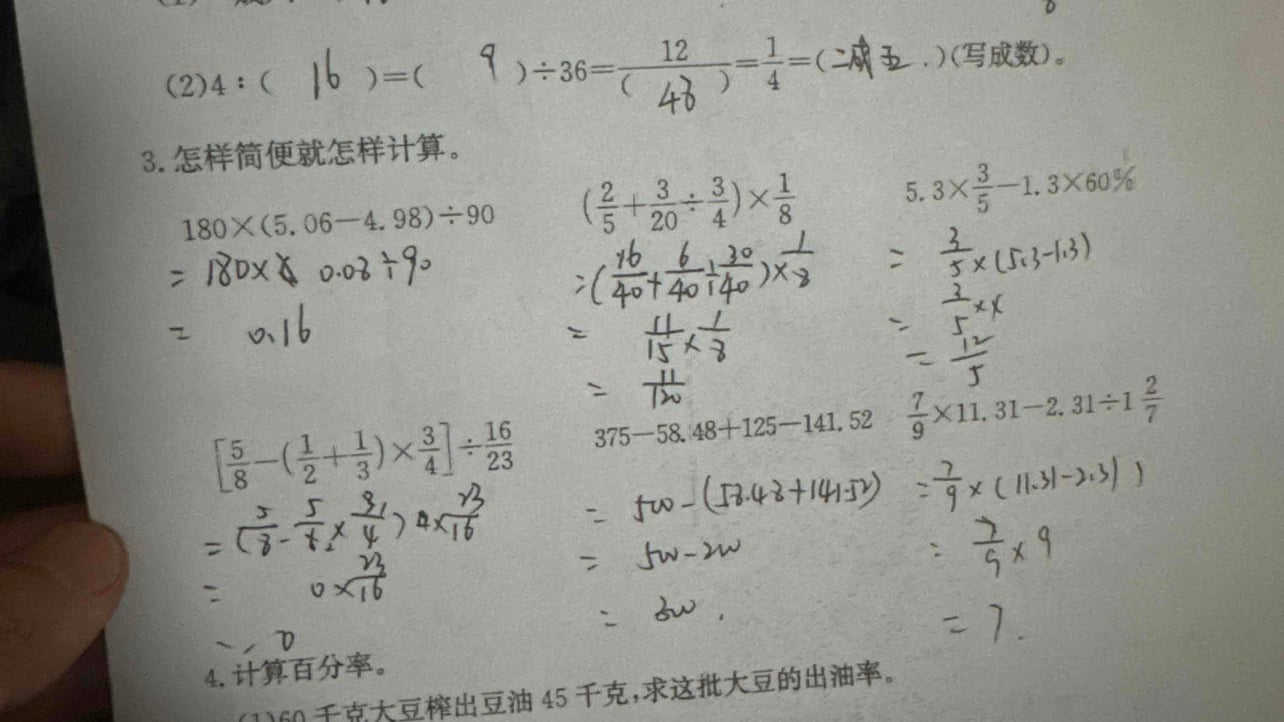 (2)4:( 16 )=( 9 )÷36=12/( 48 )=1/4=(二成五.)(写成数)。
3.怎样简便就怎样计算。
180×(5.06-4.98)÷90
=180× 0.08÷90
= 0.16
(2/5+3/20÷3/4)×1/8
=(16/40+6/40÷30/40)×1/8
= 11/15×1/8
= 11/120
5.3×3/5-1.3×60%
= 3/5×(5.3-1.3)
= 3/5×4
= 12/5
[5/8-(1/2+1/3)×3/4]÷16/23
=(5/8-5/6×3/4)×23/16
= 0×23/16
= 0
375-58.48+125-141.52
= 500-(58.48+141.52)
= 500-200
= 300.
7/9×11.31-2.31÷1 2/7
=7/9×(11.31-2.31)
= 7/9×9
= 7.
4.计算百分率。
(1)60千克大豆榨出豆油45千克,求这批大豆的出油率。